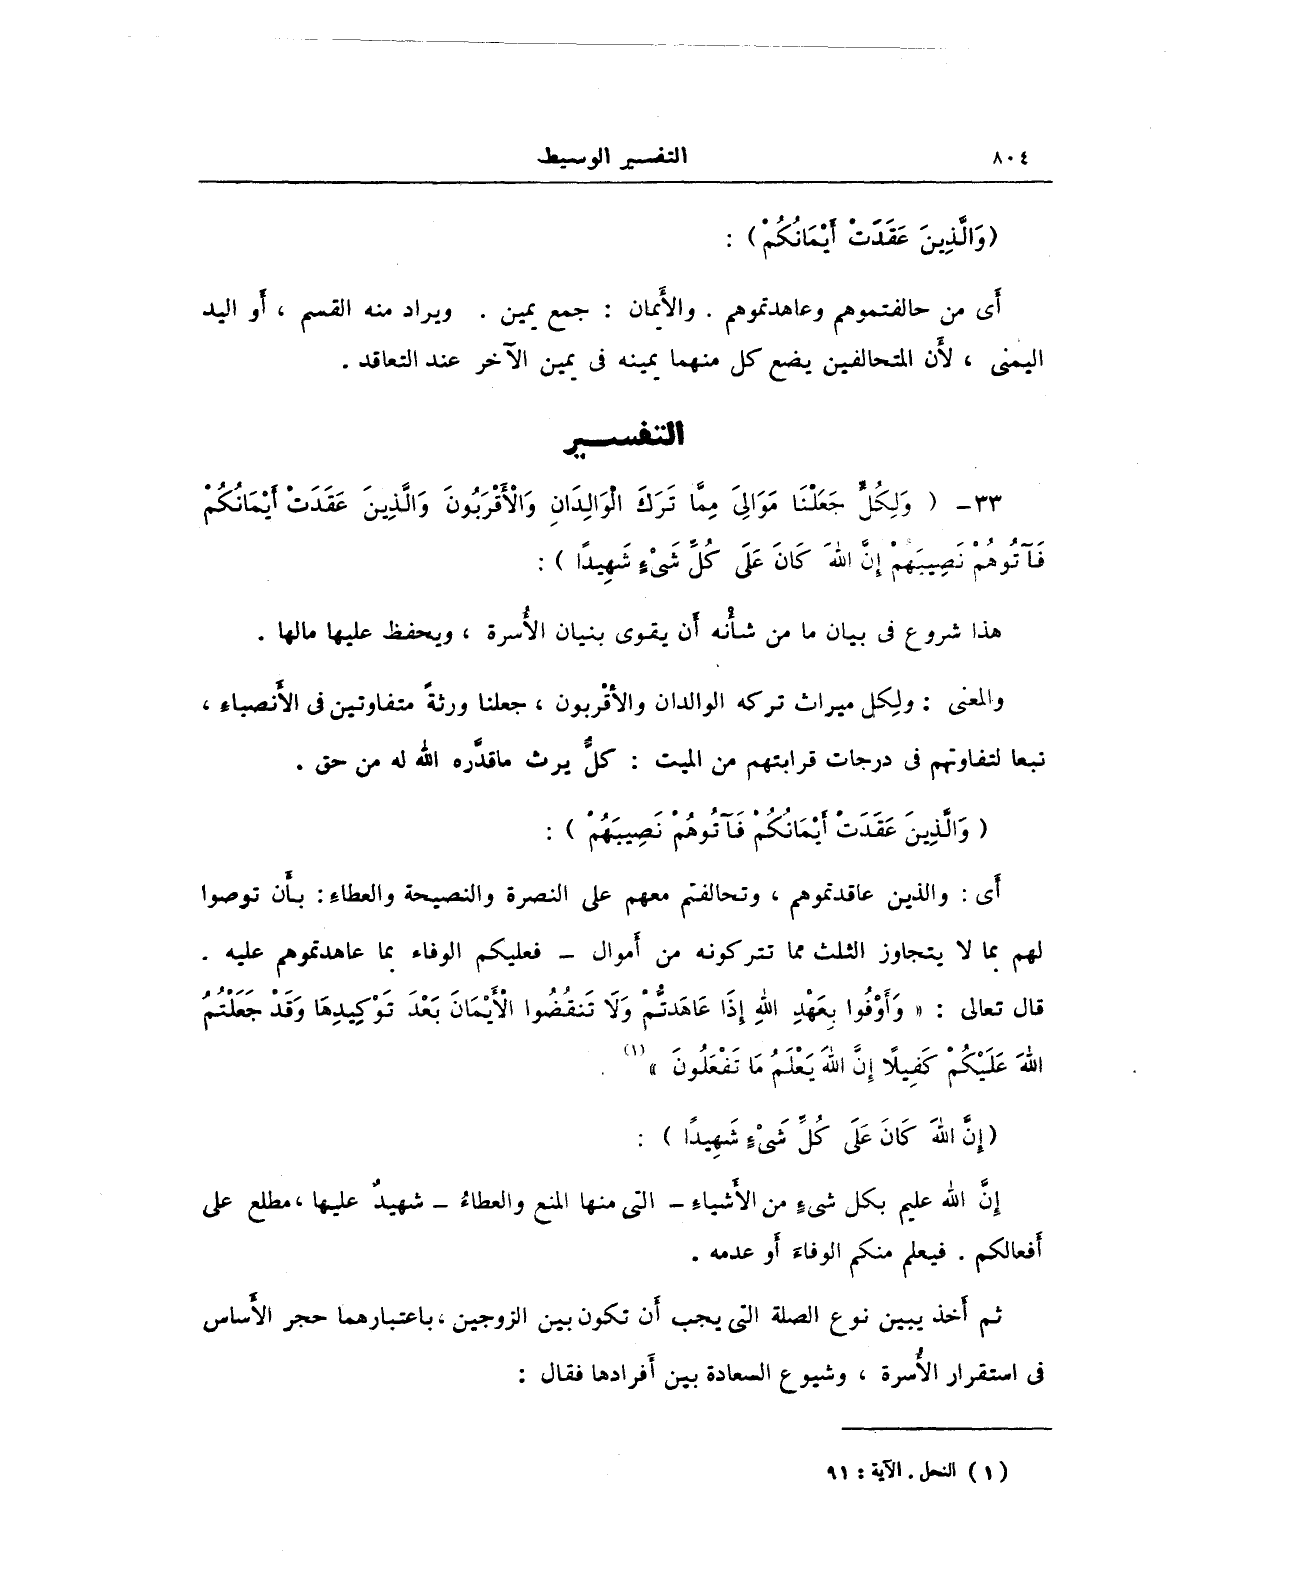 ٨٠٤
التفسير الوسيط
(وَالَّذِينَ عَقَدَتْ أَيْمَانُكُمْ) :
أَى من حالفتموهم وعاهدتموهم . والأَيمان : جمع يمين . ويراد منه القسم ، أَو اليد
اليمنى ، لأَن المتحالفين يضع كل منهما يمينه فى يمين الآخر عند التعاقد .
التفسير
٣٣- ( وَلِكُلٍّ جَعَلْنَا مَوَالِىَ مِمَّا تَرَكَ الْوَالِدَانِ وَالْأَقْرَبُونَ وَالَّذِينَ عَقَدَتْ أَيْمَانُكُمْ
فَآتُوهُمْ نَصِيبَهُمْ إِنَّ اللهَ كَانَ عَلَى كُلِّ شَىْءٍ شَهِيدًا ) :
هذا شروع فى بيان ما من شأْنه أَن يقوى بنيان الأُسرة ، ويحفظ عليها مالها .
والمعنى : ولِكلِ ميراث تركه الوالدان والأَقْربون ، جعلنا ورثةً متفاوتين فى الأَنصباء ،
تبعا لتفاوتهم فى درجات قرابتهم من الميت : كلٌّ يرث ماقدَّره الله له من حق .
( وَالَّذِينَ عَقَدَتْ أَيْمَانُكُمْ فَآتُوهُمْ نَصِيبَهُمْ ) :
أَى : والذين عاقدتموهم ، وتحالفتم معهم على النصرة والنصيحة والعطاء : بأَن توصوا
لهم بما لا يتجاوز الثلث مما تتركونه من أَموال - فعليكم الوفاء بما عاهدتموهم عليه .
قال تعالى : « وَأَوْفُوا بِعَهْدِ اللهِ إِذَا عَاهَدتُّمْ وَلَا تَنقُضُوا الْأَيْمَانَ بَعْدَ تَوْكِيدِهَا وَقَدْ جَعَلْتُمُ
اللهَ عَلَيْكُمْ كَفِيلًا إِنَّ اللهَ يَعْلَمُ مَا تَفْعَلُونَ »(١) .
(إِنَّ اللهَ كَانَ عَلَى كُلِّ شَىْءٍ شَهِيدًا ) :
إِنَّ الله عليم بكل شىءٍ من الأَشياءِ - التى منها المنع والعطاءُ - شهيدٌ عليها ، مطلع على
أَفعالكم . فيعلم منكم الوفاءَ أَو عدمه .
ثم أَخذ يبين نوع الصلة التى يجب أَن تكون بين الزوجين ، باعتبارهما حجر الأَساس
فى استقرار الأُسرة ، وشيوع السعادة بين أَفرادها فقال :
(١) النحل . الآية : ٩١